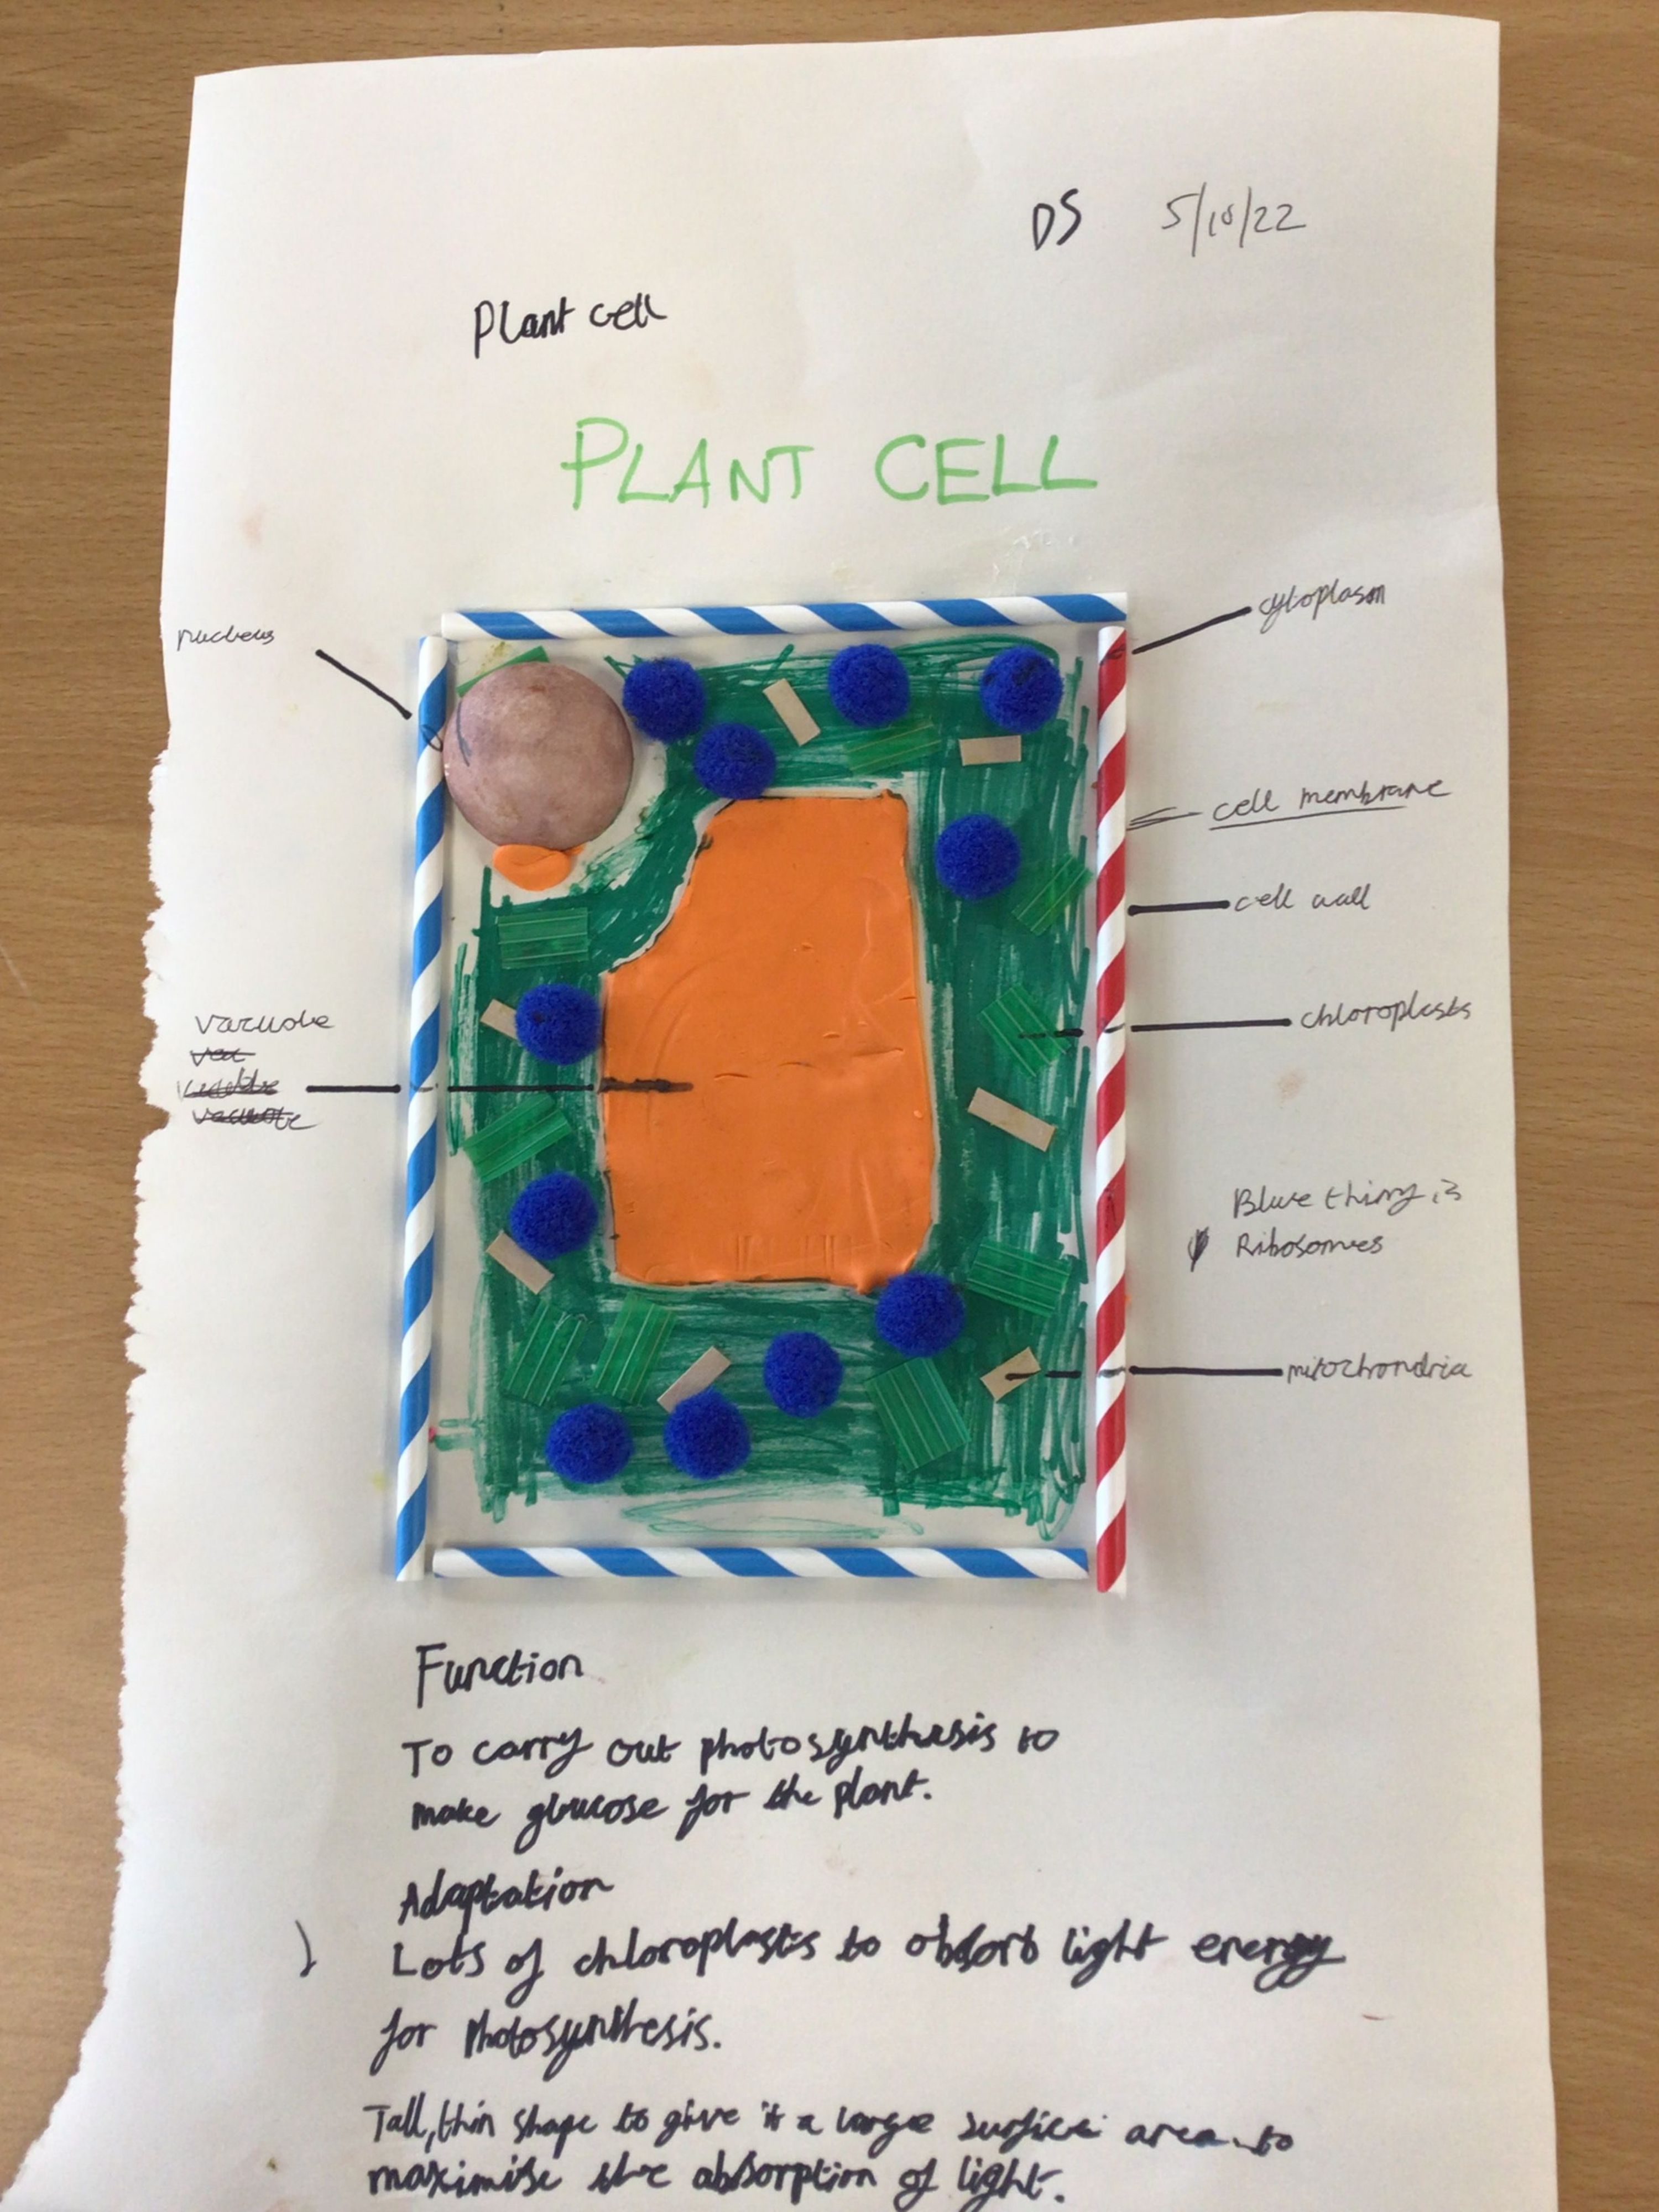 DS 5/10/22
Plant cell
PLANT CELL
nucleus
cytoplasm
cell membrane
cell wall
vacuole
chloroplasts
Blue thing is
Ribosomes
mitochondria
Function
To carry out photosynthesis to
make glucose for the plant.
Adaptation
Lots of chloroplasts to absorb light energy
for Photosynthesis.
Tall, thin shape to give it a large surface area to
maximise the absorption of light.